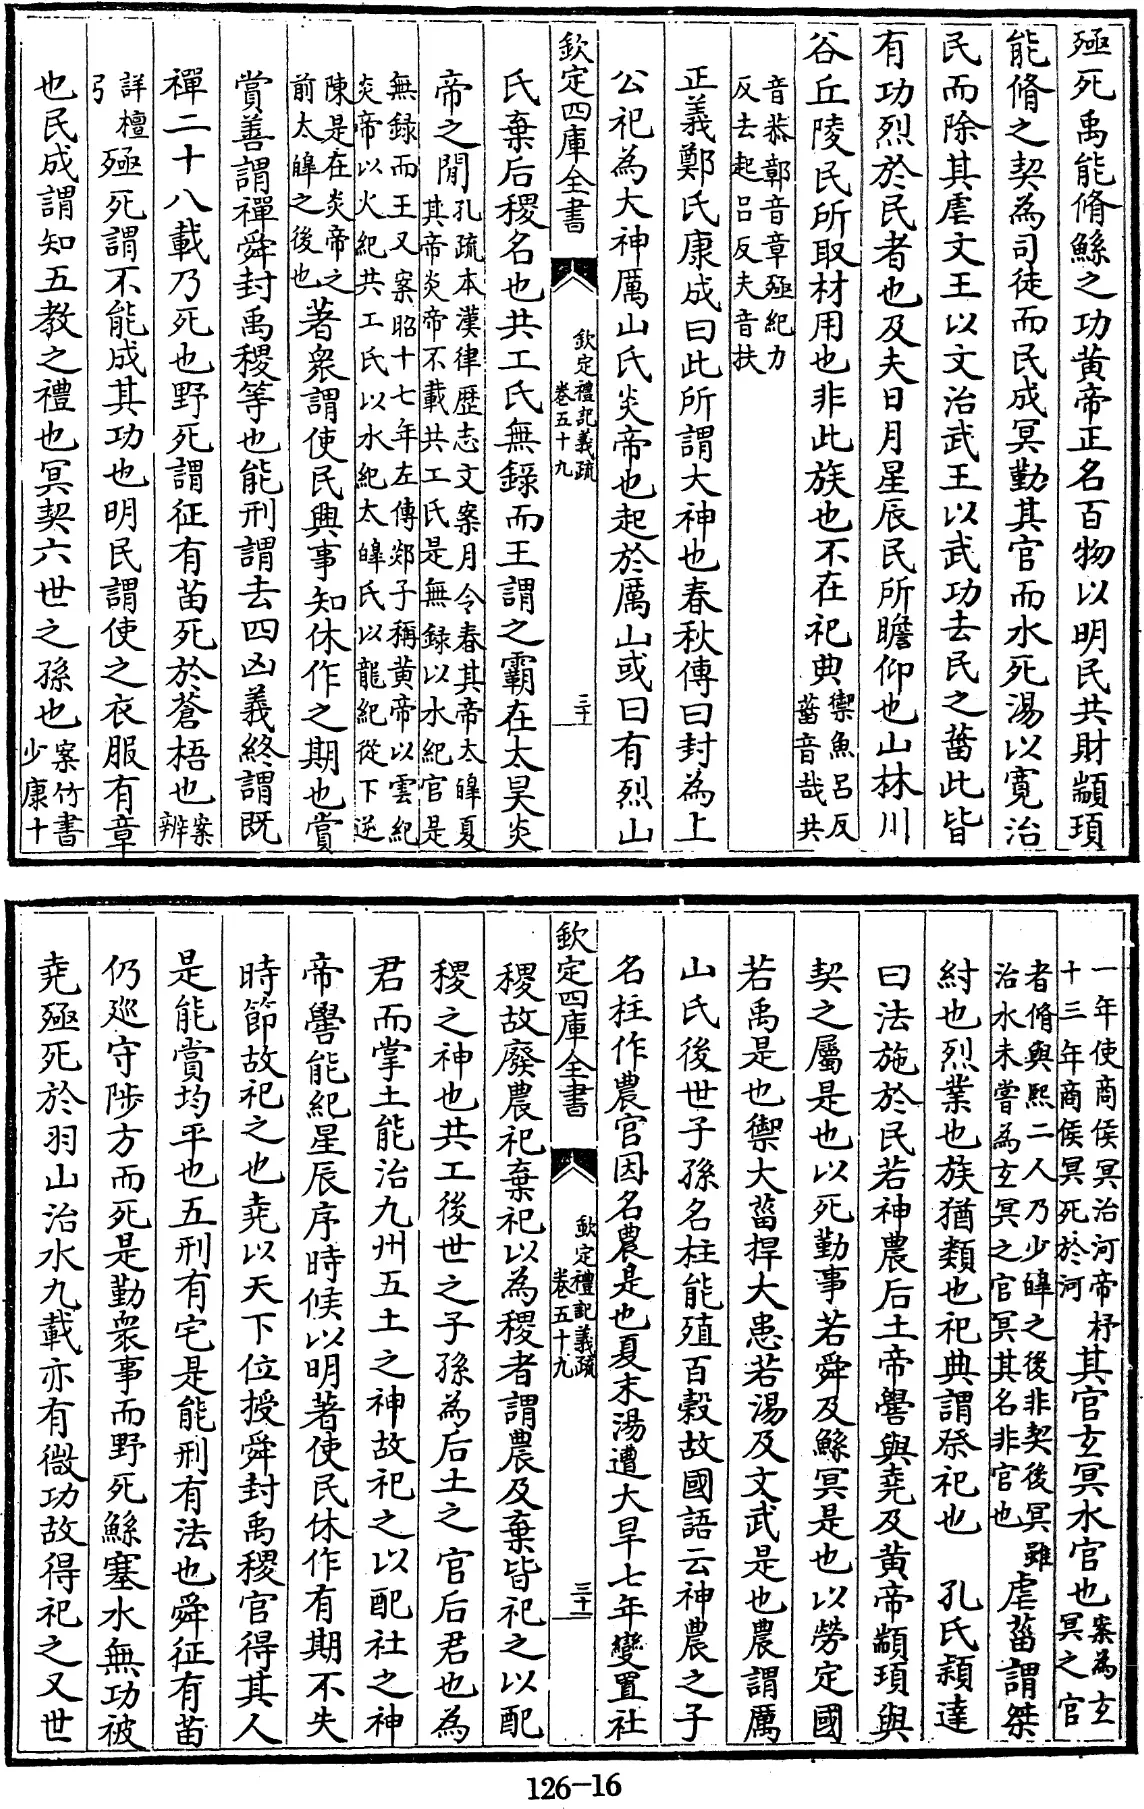 殛死禹能脩鯀之功黄帝正名百物以明民共財顓頊
能脩之契為司徒而民成冥勤其官而水死湯以寛治
民而除其虐文王以文治武王以武功去民之菑此皆
有功烈於民者也及夫日月星辰民所瞻仰也山林川
谷丘陵民所取材用也非此族也不在祀典禦魚呂反
菑音哉共
音恭鄣音章殛紀力
反去起呂反夫音扶
正義鄭氏康成曰此所謂大神也春秋傳曰封為上
公祀為大神厲山氏炎帝也起於厲山或曰有烈山
欽定四庫全書
欽定禮記義疏
卷五十九
三十
氏棄后稷名也共工氏無錄而王謂之霸在太昊炎
帝之閒孔疏本漢律歴志文案月令春其帝太皥夏
其帝炎帝不載共工氏是無録以水紀官是
無録而王又案昭十七年左傳郯子稱黄帝以雲紀
炎帝以火紀共工氏以水紀太皥氏以龍紀從下逆
陳是在炎帝之
前太皥之後也著衆謂使民興事知休作之期也賞
賞善謂禪舜封禹稷等也能刑謂去四凶義終謂既
禪二十八載乃死也野死謂征有苗死於蒼梧也案
辨
詳檀
弓殛死謂不能成其功也明民謂使之衣服有章
也民成謂知五教之禮也冥契六世之孫也案竹書
少康十
一年使商侯冥治河帝杼
十三年商侯冥死於河其官玄冥水官也案為玄
冥之官
者脩與熙二人乃少皥之後非契後冥雖
治水未嘗為玄冥之官冥其名非官也虐菑謂桀
紂也烈業也族猶類也祀典謂祭祀也 孔氏穎達
曰法施於民若神農后土帝嚳與堯及黄帝顓頊與
契之屬是也以死勤事若舜及鯀冥是也以勞定國
若禹是也禦大菑捍大患若湯及文武是也農謂厲
山氏後世子孫名柱能殖百穀故國語云神農之子
名柱作農官因名農是也夏末湯遭大旱七年變置社
欽定四庫全書
欽定禮記義疏
卷五十九
三十一
稷故廢農祀棄祀以為稷者謂農及棄皆祀之以配
稷之神也共工後世之子孫為后土之官后君也為
君而掌土能治九州五土之神故祀之以配社之神
帝嚳能紀星辰序時候以明著使民休作有期不失
時節故祀之也堯以天下位授舜封禹稷官得其人
是能賞均平也五刑有宅是能刑有法也舜征有苗
仍巡守陟方而死是勤衆事而野死鯀塞水無功被
堯殛死於羽山治水九載亦有㣲功故得祀之又世
126-16